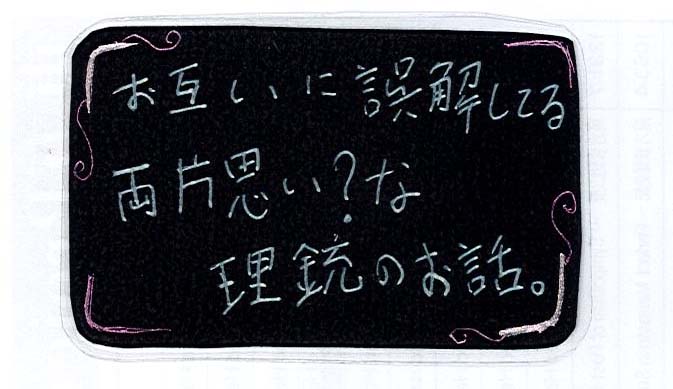 お互いに誤解してる
両片思い?な
理銃のお話。